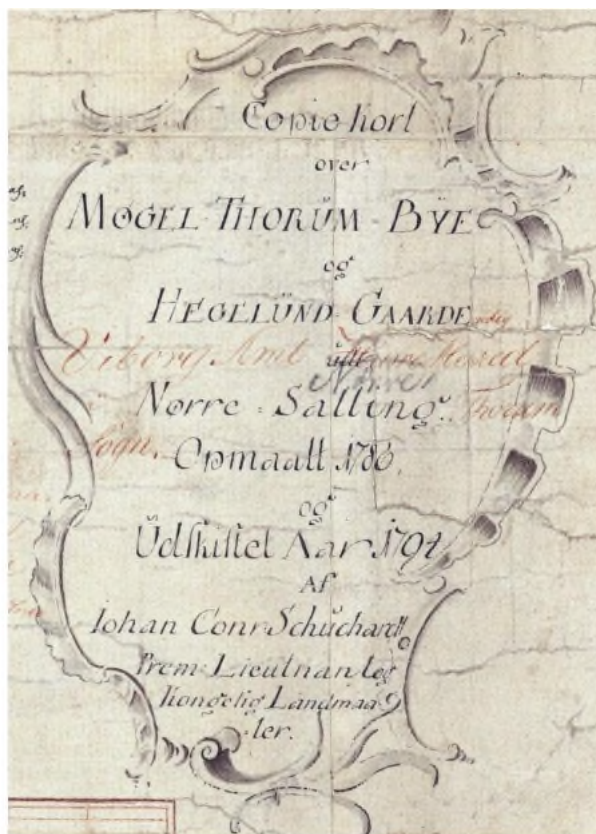 Copie Kort
over
MØGEL-THORŬM-BŸE
og
HEGELŬND-GAARDE
Viborg Amt
Nørre
Nørre-Salling. Thorum
Sogn.
Opmaalt 1786.
og
Ŭdskiftet Aar 1791
Af
Iohan Conr: Schŭchardt
Prem: Lieutnant og
Kongelig Landmaa
:ler.